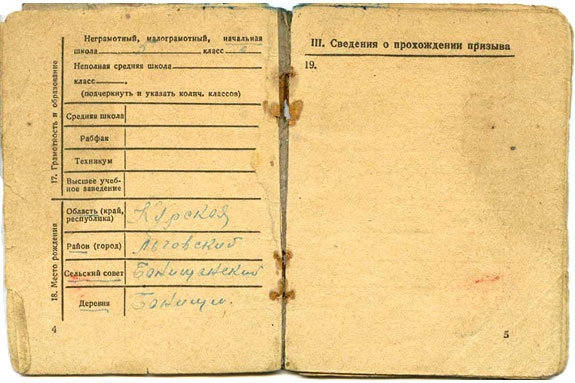 17. Грамотность и образование
Неграмотный, малограмотный, начальная
школа класс
Неполная средняя школа
класс
(подчеркнуть и указать колич. классов)
Средняя школа
Рабфак
Техникум
Высшее учеб-
ное заведение
18. Место рождения
Область (край,
республика) Курская
Район (город) Льговский
Сельский совет Банищанский
Деревня Банищи.
4
III. Сведения о прохождении призыва
19.
5